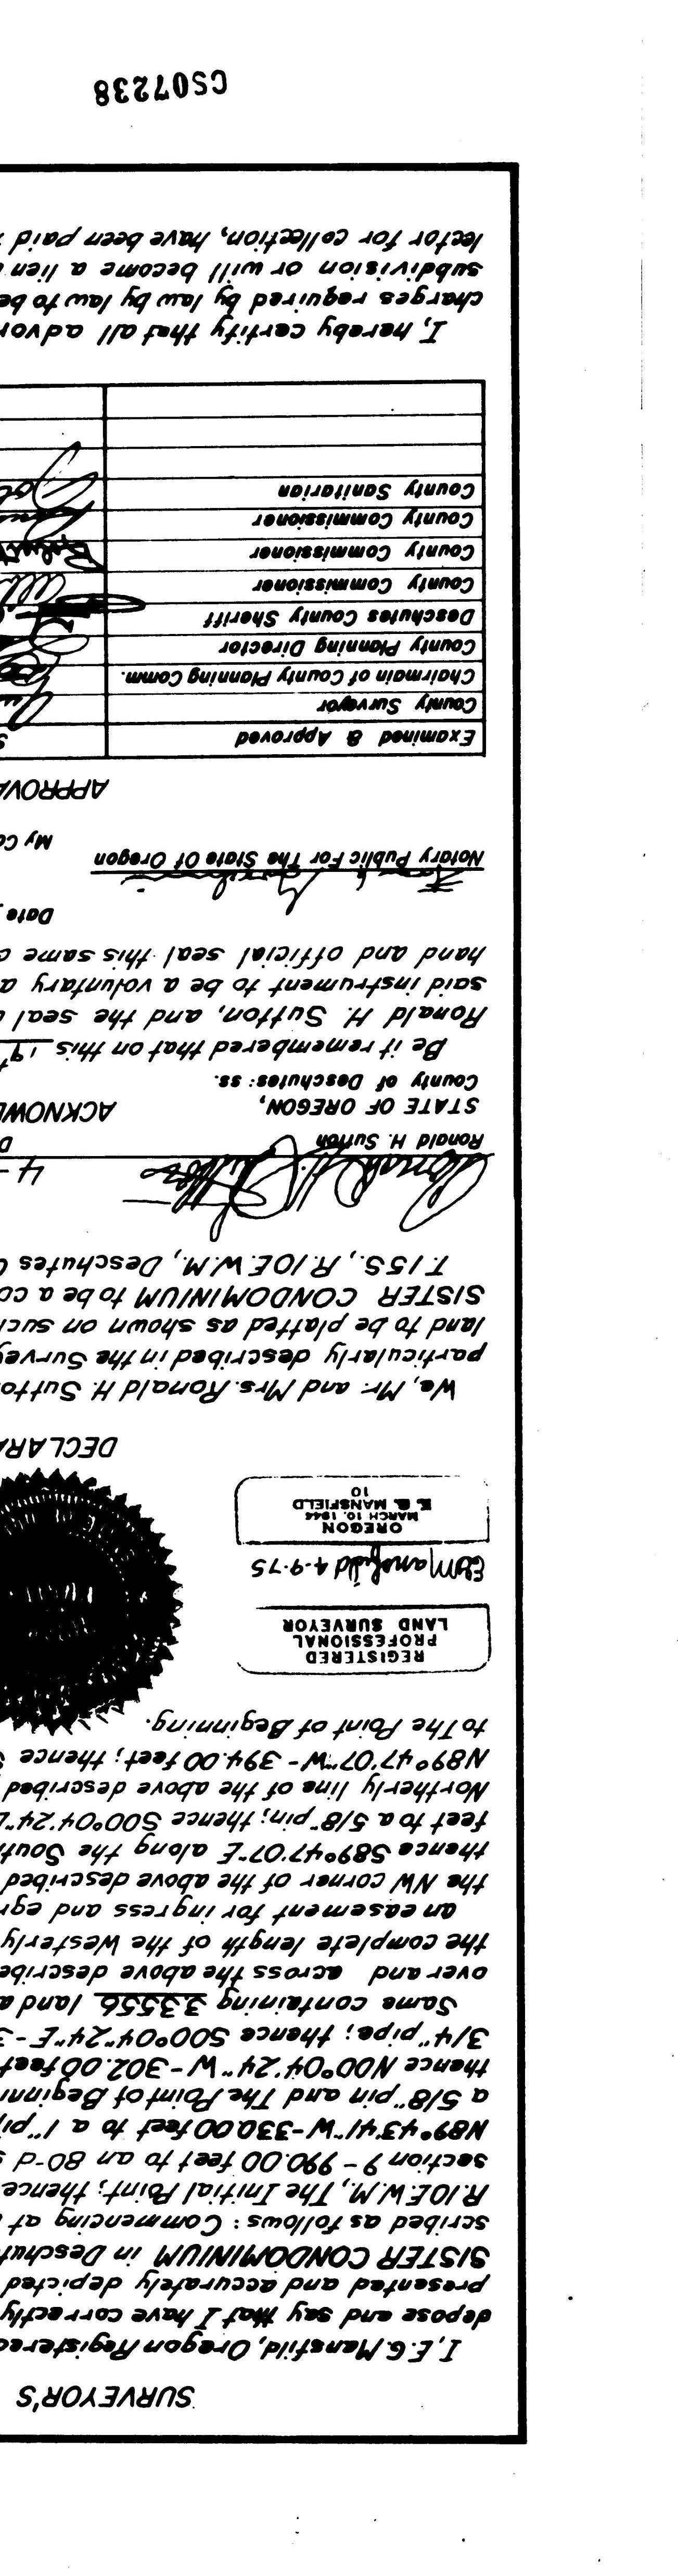 SURVEYOR'S
I, E.G. Mansfild, Oregon Registered
depose and say that I have correctly
presented and accurately depicted
SISTER CONDOMINIUM in Deschut
scribed as follows: Commencing at
R10E.W.M., The Initial Point; thence
section 9 - 990.00 feet to an 80-d s
N89°43'41"W-330.00 feet to a 1" pi
a 5/8" pin and The Point of Beginni
thence N00°04'24"W-302.00 feet
3/4" pipe; thence S00°04'24"E-3
Same containing 3.3556 land a
over and across the above describe
the complete length of the Westerly
an easement for ingress and egr
the NW corner of the above described
thence S89°47'07"E along the South
feet to a 5/8" pin; thence S00°04'24"E
Northerly line of the above described
N89°47'07"W-394.00 feet; thence S
to The Point of Beginning.
REGISTERED
PROFESSIONAL
LAND SURVEYOR
EG Mansfield 4-9-75
OREGON
MARCH 10, 1944
E. G. MANSFIELD
10
DECLARA
We, Mr. and Mrs. Ronald H. Sutto
particularly described in the Survey
land to be platted as shown on such
SISTER CONDOMINIUM to be a co
T.15S., R.10E.W.M., Deschutes C
Ronald H. Sutton 4-
Ronald H. Sutton D
STATE OF OREGON, ACKNOWLE
County of Deschutes: ss.
Be it remembered that on this 19t
Ronald H. Sutton, and the seal
said instrument to be a voluntary a
hand and official seal this same d
Date
Notary Public For The State Of Oregon My Co
APPROVA
Examined & Approved S
County Surveyor
Chairmain of County Planning Comm.
County Planning Director
Deschutes County Sheriff
County Commissioner
County Commissioner
County Commissioner
County Sanitarian
I, hereby certify that all advor
charges required by law by law to be
subdivision or will become a lien
lector for collection, have been paid
CS07238